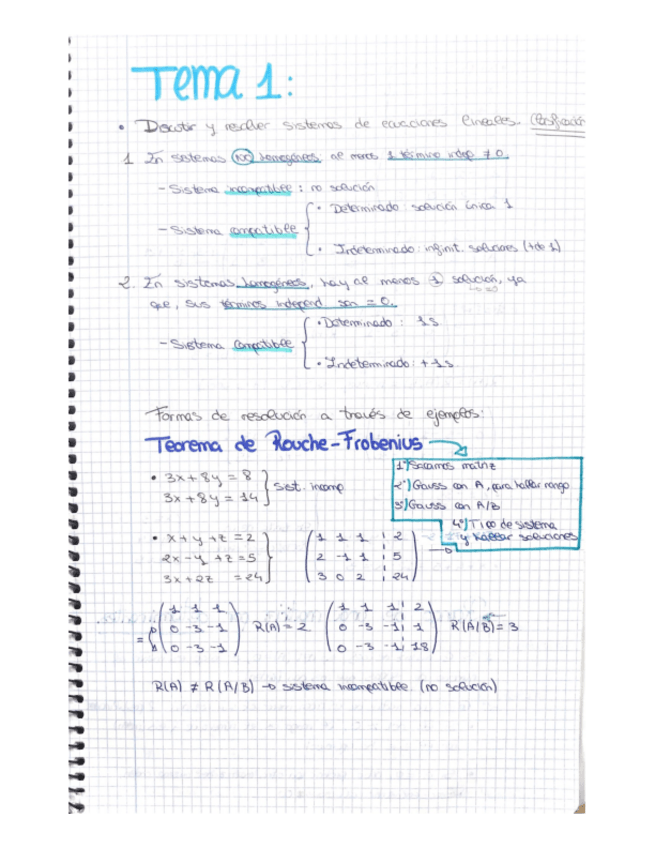 Tema 1:
• Discutir y resolver sistemas de ecuaciones lineales. (Clasificación
1. En sistemas NO homogéneos, al menos 1 término indep ≠ 0.
- Sistema incompatible: no solución
• Determinado: solución única 1
- Sistema compatible
• Indeterminado: infinit. soluciones (+de 1)
2. En sistemas homogéneos, hay al menos 1 solución, ya
que, sus términos independ son = 0.
• Determinado: 1s
- Sistema compatible
• Indeterminado: +1s
Formas de resolución a través de ejemplos:
Teorema de Rouche-Frobenius
1º) Sacamos matriz
2º) Gauss con A, para hallar rango
3º) Gauss con A/B
4º) Tipo de sistema
y hallar soluciones
• 3x + 8y = 8
3x + 8y = 14
sist. incomp
• x + y + z = 2
2x - y + z = 5
3x + 2z = 24
1 1 1 2
2 -1 1 5
3 0 2 24
=
1 1 1
0 -3 -1
0 -3 -1
R(A) = 2
1 1 1 2
0 -3 -1 1
0 -3 -1 18
R(A/B) = 3
R(A) ≠ R(A/B) → sistema incompatible (no solución)